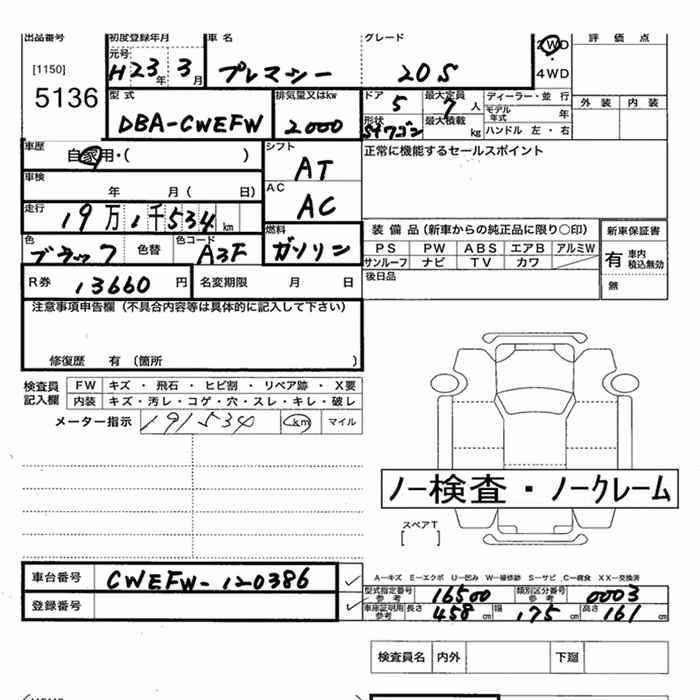 出品番号 初度登録年月 車名 グレード 2WD 評価点
[1150] 元号 H23年 3月 プレマシー 20S 4WD
5136 型式 排気量又はkw ドア 5 最大定員 7人 ディーラー・並行 外装 内装
DBA-CWEFW 2000 形状 Stワゴン 最大積載 kg モデル年式 年
ハンドル 左・右
車歴 自家用・( ) シフト AT 正常に機能するセールスポイント
車検 年 月( 日) AC AC
走行 19万1千534km 燃料 ガソリン 装備品(新車からの純正品に限り○印) 新車保証書
色 ブラック 色替 色コード A3F PS PW ABS エアB アルミW 有 車内積込無効
サンルーフ ナビ TV カワ
R券 13660円 名変期限 月 日 後日品 無
注意事項申告欄(不具合内容等は具体的に記入して下さい)
修復歴 有 (箇所 )
検査員記入欄 FW キズ・飛石・ヒビ割・リペア跡・X要
内装 キズ・汚レ・コゲ・穴・スレ・キレ・破レ
メーター指示 191534 km マイル
ノー検査・ノークレーム
スペアT
車台番号 CWEFW-120386 A－キズ E－エクボ U－凹み W－補修跡 S－サビ C－腐食 XX－交換済
登録番号 型式指定番号 参考 16500 類別区分番号 参考 0003
車庫証明用 参考 長さ 458cm 幅 175cm 高さ 161cm
検査員名 内外 下廻